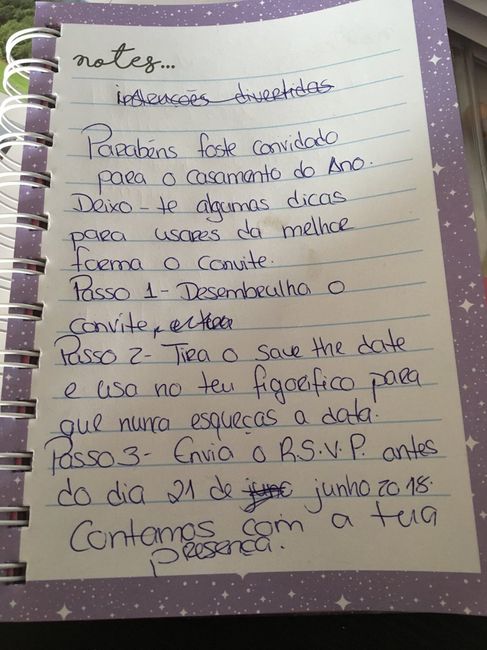 notes...
instruções divertidas
Parabéns foste convidado
para o casamento do Ano.
Deixo-te algumas dicas
para usares da melhor
forma o convite.
Passo 1- Desembrulha o
convite,
Passo 2- Tira o save the date
e usa no teu figorifico para
que nunca esqueças a data.
Passo 3- Envia o R.S.V.P. antes
do dia 21 de junho 2018.
Contamos com a tua
presença.